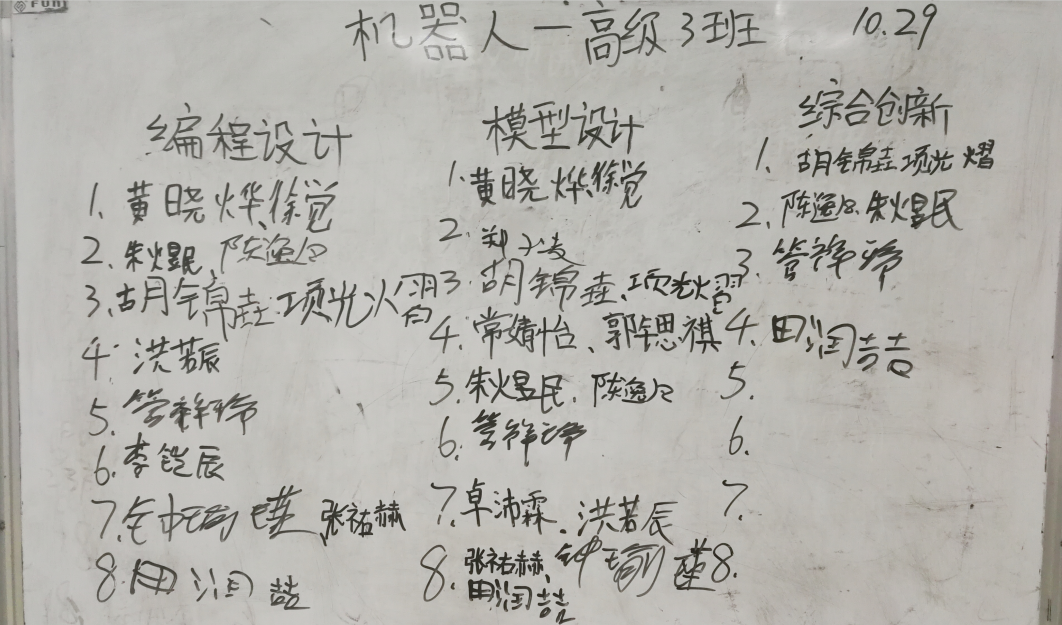 机器人一高级3班 10.29
编程设计
1. 黄晓烨、徐觉
2. 朱煜民、陈逸
3. 胡锦垚 项光熠
4. 洪若辰
5. 管梓
6. 李铠辰
7. 钟瑜瑾 张祐赫
8. 田润喆
模型设计
1. 黄晓烨、徐觉
2. 郑子凌
3. 胡锦垚、项光熠
4. 常婧怡、郭思祺
5. 朱煜民、陈逸
6. 管梓
7. 卓沛霖、洪若辰
8. 张祐赫、钟瑜瑾
田润喆
综合创新
1. 胡锦垚 项光熠
2. 陈逸 朱煜民
3. 管梓
4. 田润喆
5.
6.
7.
8.